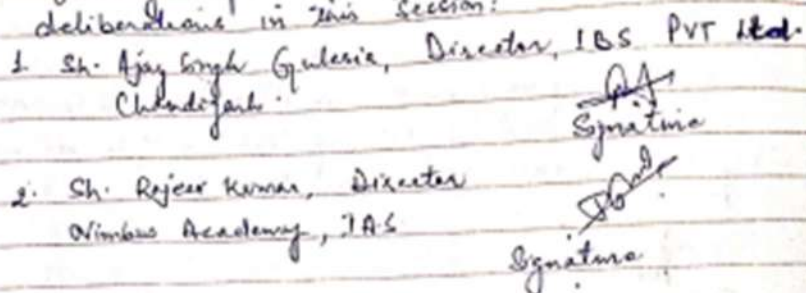 deliberations in this section:
1 Sh. Ajay Singh Guleria, Director, IBS PVT Ltd.
Chandigarh.
Signature
2. Sh. Rajeev Kumar, Director
Nimbus Academy, IAS
Signature